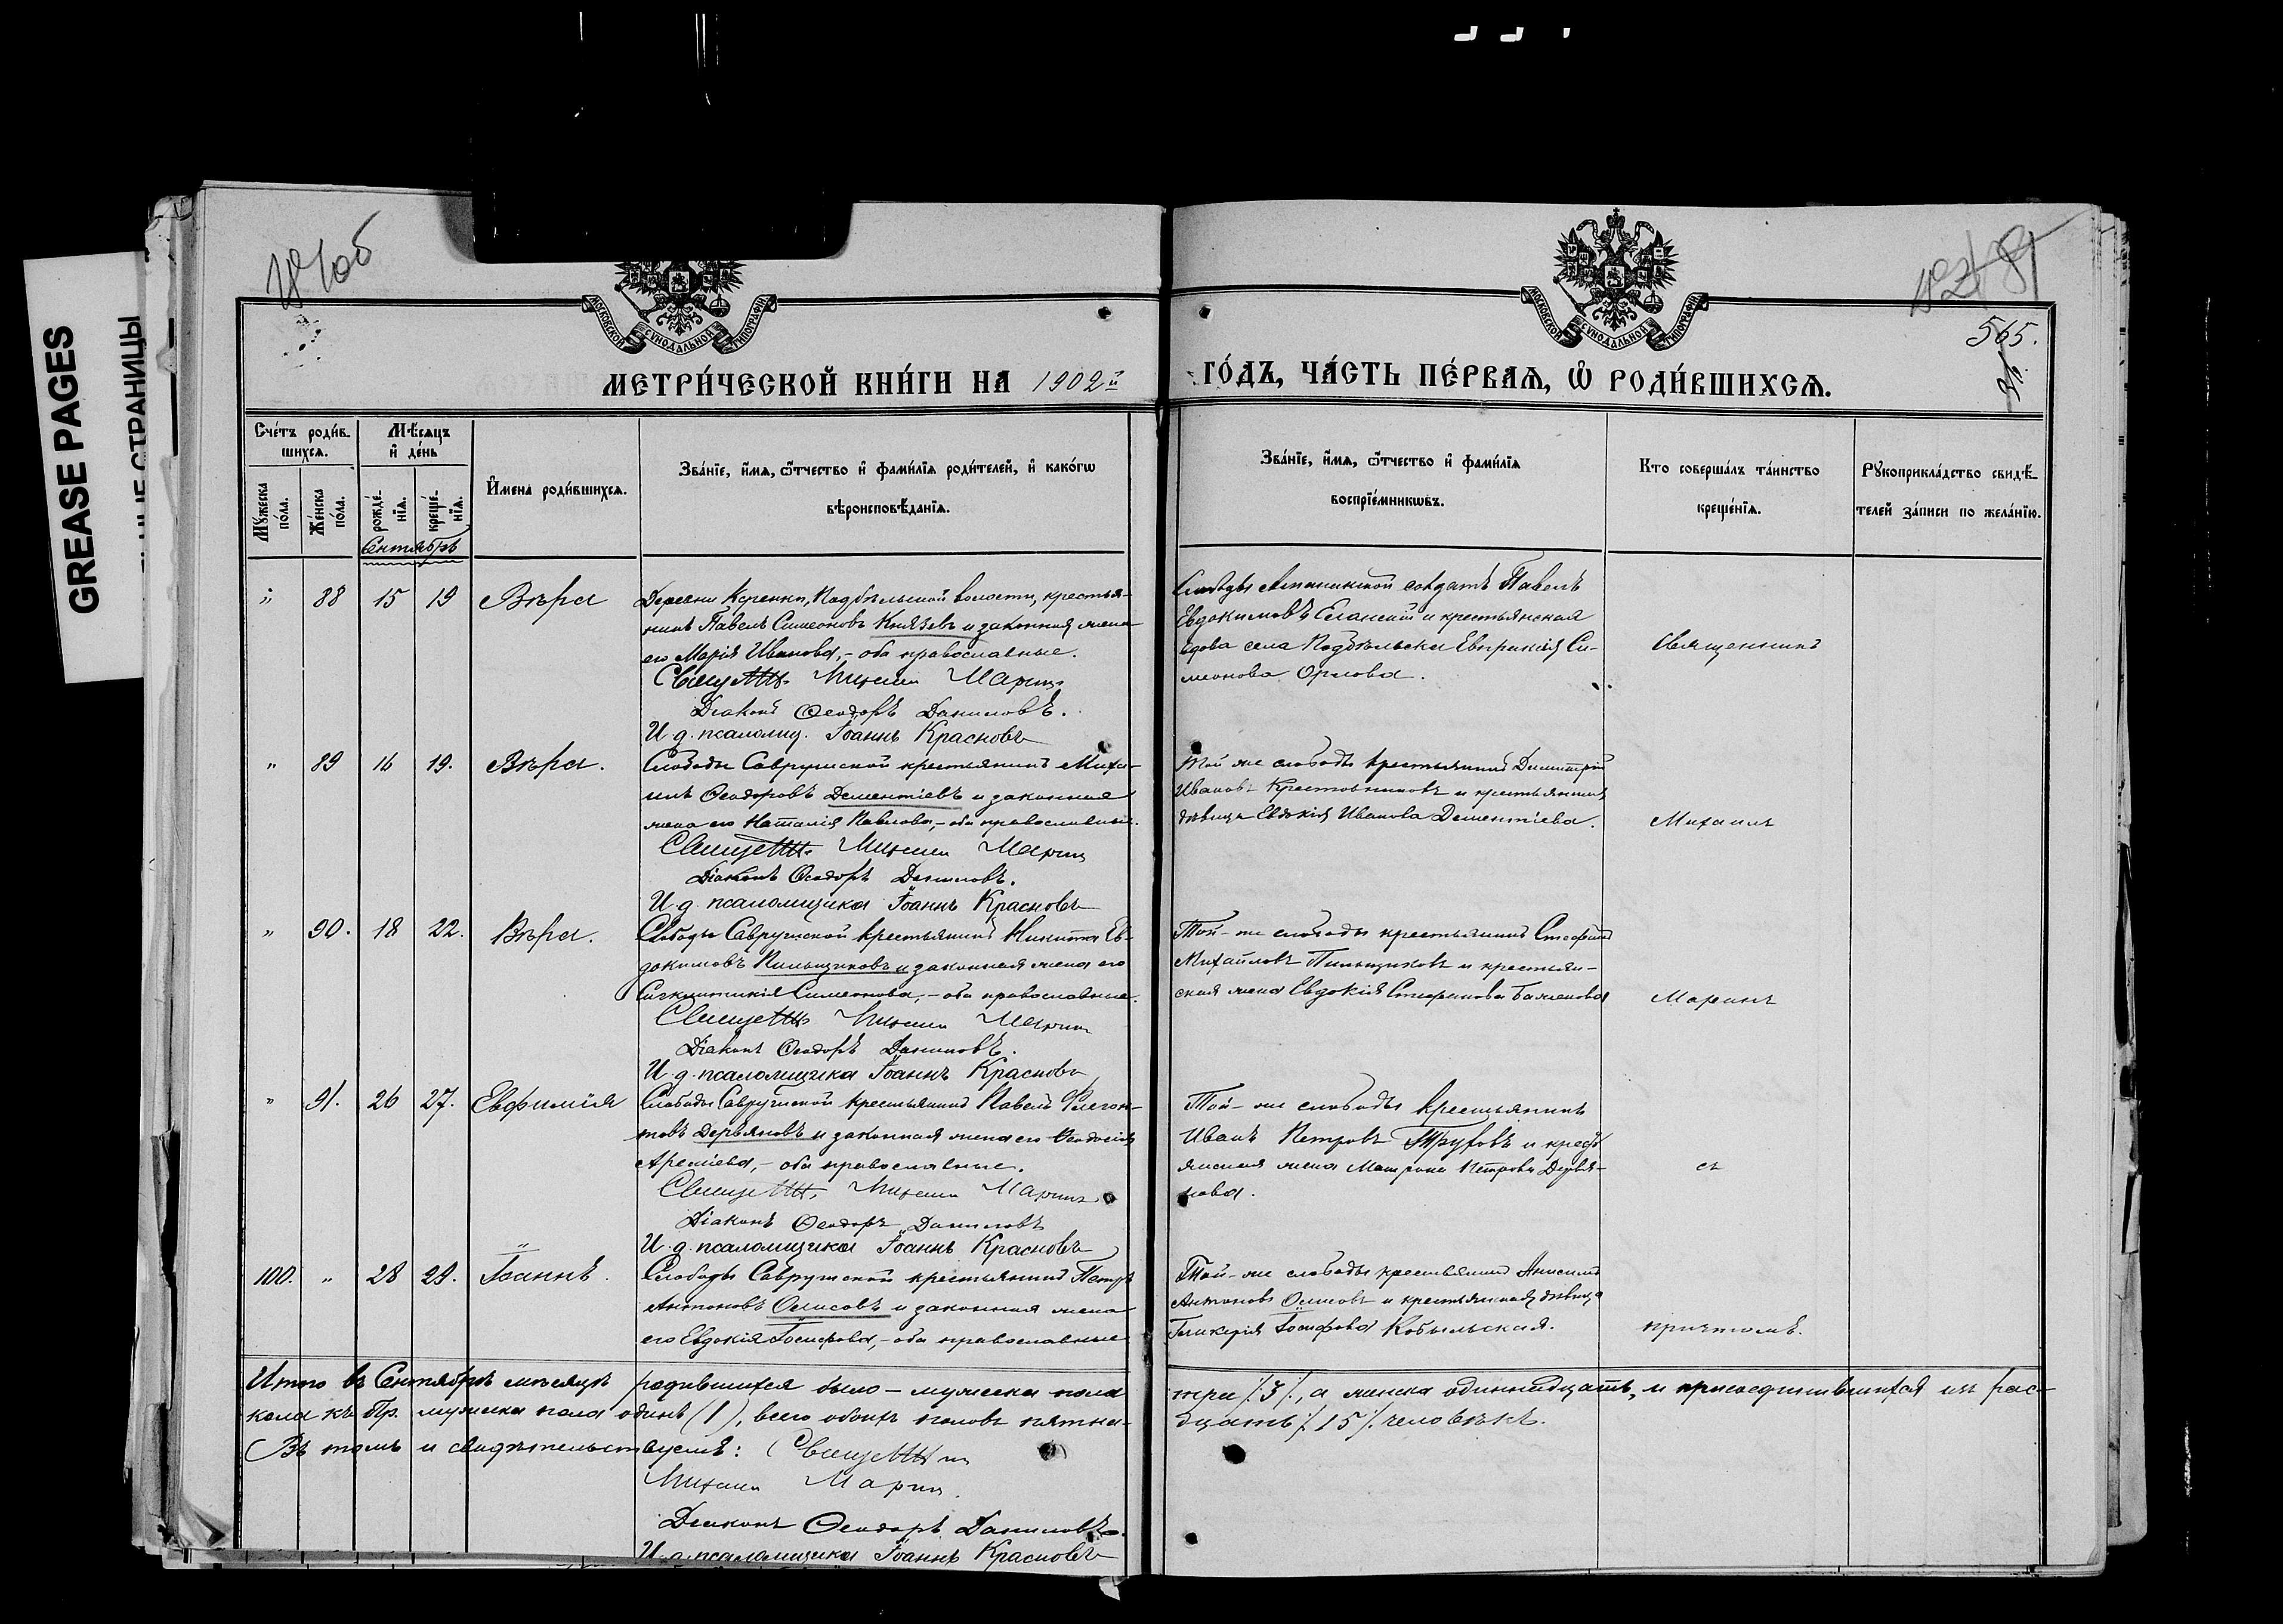 GREASE PAGES
СТРАНИЦЫ
565.
МОСКОВСКОЙ СУНОДАЛЬНОЙ ТИПОГРАФІИ
МОСКОВСКОЙ СУНОДАЛЬНОЙ ТИПОГРАФІИ
МЕТРИ́ЧЕСКОЙ КНИ́ГИ НА 1902й ГО́ДЪ, ЧА́СТЬ ПЕ́РВАЯ, Ѡ҆ РОДИ́ВШИХСЯ.
Сче́тъ роди́в-
шихся.
Мѣ́сяцъ
и҆ де́нь
Мꙋ́жеска
по́ла.
Же́нска
по́ла.
рожде́-
нїя.
креще́-
нїя.
И҆мена роди́вшихся.
Зва́нїе, и҆́мя, ѻ҆́тчество и҆ фами́лїя роди́телей, и҆ како́гѡ
вѣроисповѣ́данїя.
Зва́нїе, и҆́мя, ѻ҆́тчество и҆ фами́лїя
воспрїе́мникѡвъ.
Кто соверша́лъ та́инство
креще́нїя.
Рꙋкоприкла́дство свидѣ́-
телей за́писи по жела́нїю.
Сентябрь
" 88 15 19 Вѣра
Деревни Коренки, Подбѣльской волости, крестья-
нинъ Павелъ Симеоновъ Князевъ и законная жена
его Марія Иванова,- оба православные.
Михаилъ Маринъ
Діаконъ Ѳеодоръ Даниловъ.
И. д. псаломщ. Іоаннъ Красновъ
солдатъ Павелъ
Евдокимовъ Еланскій и крестьянская
вдова села Подбѣльска Евпраксія Си-
меонова Орлова.
Священникъ
" 89 16 19. Вѣра.
Слободы Саврушской крестьянинъ Миха-
илъ Ѳеодоровъ Дементіевъ и законная
жена его Наталія Павлова,- оба православные.
Михаилъ Маринъ
Діаконъ Ѳеодоръ Даниловъ.
И. д. псаломщика Іоаннъ Красновъ
Той же слободы крестьянинъ Димитрій
Ивановъ Крестовниковъ и крестьянская
дѣвица Евдокія Иванова Дементіева.
Михаилъ
" 90. 18 22. Вѣра.
Слободы Саврушской крестьянинъ Никита Ев-
докимовъ Пильщиковъ и законная жена его
Симеонова,- оба православные.
Михаилъ Маринъ
Діаконъ Ѳеодоръ Даниловъ.
И. д. псаломщика Іоаннъ Красновъ
Той-же слободы крестьянинъ Стефанъ
Михайловъ Пильщиковъ и крестьян-
ская жена Евдокія Стефанова Баженова
Маринъ
" 91. 26 27. Евфимія
Слободы Саврушской крестьянинъ Павелъ Флегон-
товъ Деревяновъ и законная жена его Ѳеодосія
Арсеніева,- оба православные.
Михаилъ Маринъ
Діаконъ Ѳеодоръ Даниловъ
И. д. псаломщика Іоаннъ Красновъ
Той-же слободы крестьянинъ
Иванъ Петровъ Труфовъ и крест-
янская жена Матрона Петрова Деревя-
нова.
съ
100. " 28 29. Іоаннъ.
Слободы Саврушской крестьянинъ Петръ
Антоновъ Осмисовъ и законная жена
его Евдокія Іосифова,- оба православные
Той-же слободы крестьянинъ Анисимъ
Антоновъ Осмисовъ и крестьянская дѣвица
Гликерія Іосифова Кобыльская.
причтомъ.
Итого въ Сентябрѣ мѣсяцѣ родившихся было - мужеска пола три /.3/., а женска одиннадцать, и присоединившихся изъ рас-
кола къ Пр. мужеска пола одинъ (1), всего обоихъ половъ пятна- дцать /.15/. человѣкъ.
Въ томъ и свидѣтельствуемъ:
Михаилъ Маринъ.
Діаконъ Ѳеодоръ Даниловъ.
И. д. псаломщика Іоаннъ Красновъ